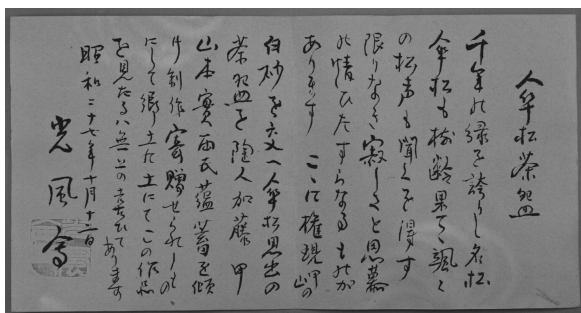 人傘松茶盌
千年の緑を誇りし名松
傘松も樹齢果てゝ颯々
の松声も聞くを得ず
限りなき寂しさと思慕
の情ひたすらなるものが
あります こゝに権現岬の
白砂を交へ傘松思出の
茶盌を陶人加藤 甲
山本實両氏蘊蓄を傾
け制作 寄贈せられしもの、
にして郷土た土にてこの作品
を見たるハ無上の喜びで あります
昭和二十七年十月十二日
光風寫